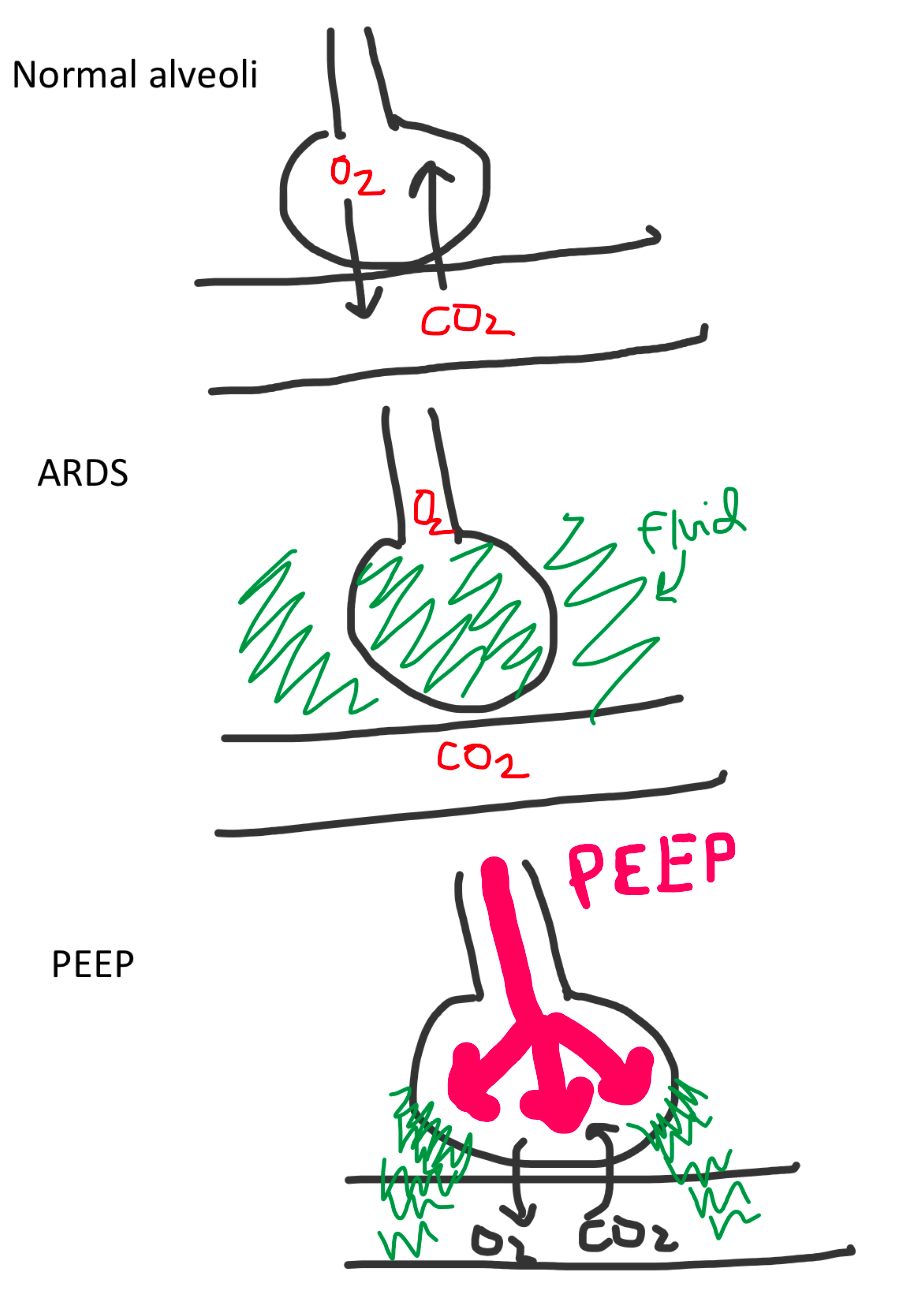 Normal alveoli
O2
CO2
ARDS
O2
Fluid
CO2
PEEP
PEEP
O2
CO2